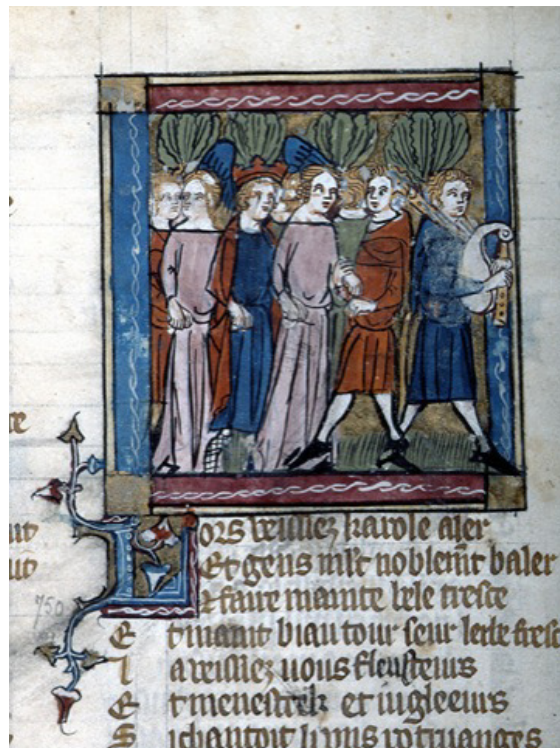 Lors veissiez karole aler
Et gens mlt noblemt baler
Et faire mainte bele tresce
E t maint biau tour seur lerbe fresc
L a veissiez uous fleusteurs
E t menestrelx et iugleeurs
S i chantoit li uns rotruanges
750